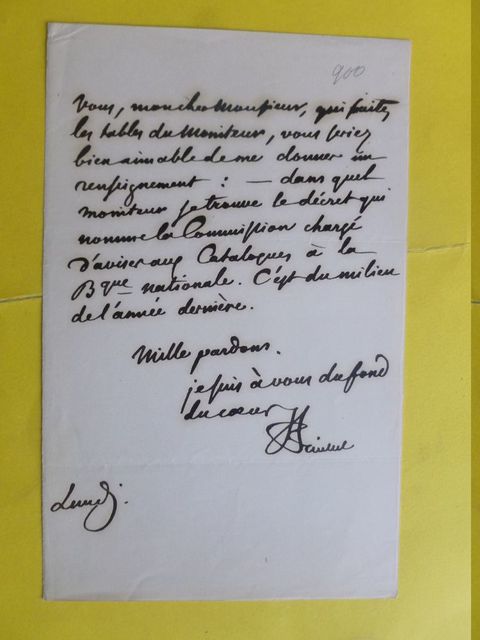 900
Vous, mon cher Monsieur, qui faites
les tables du Moniteur, vous seriez
bien aimable de me donner un
renseignement : — dans quel
moniteur se trouve le décret qui
nomme la Commission chargé
d'aviser aux Catalogues à la
Bque nationale. C'est du milieu
de l'année dernière.
Mille pardons.
je suis à vous du fond
du cœur
Lundi.